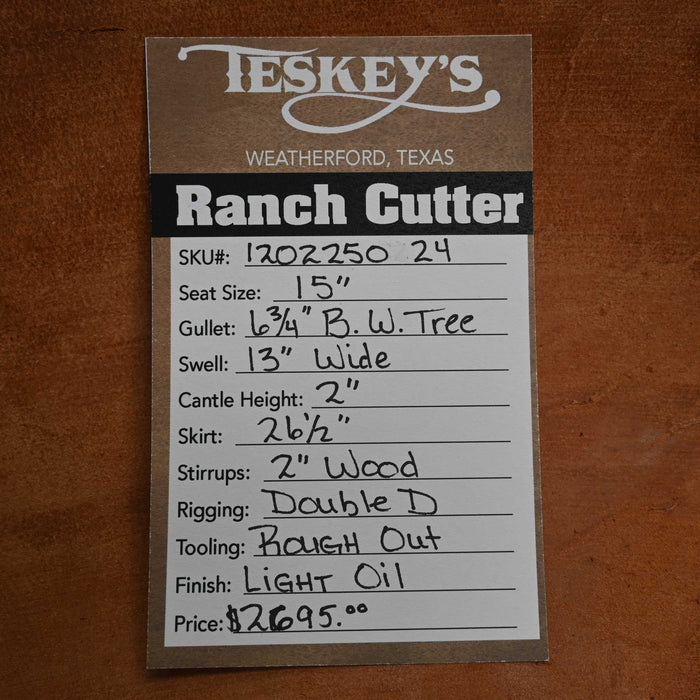 TESKEY'S
WEATHERFORD, TEXAS
Ranch Cutter
SKU#: 1202250 24
Seat Size: 15"
Gullet: 6 3/4" B. W. Tree
Swell: 13" Wide
Cantle Height: 2"
Skirt: 26 1/2"
Stirrups: 2" Wood
Rigging: Double D
Tooling: ROUGH Out
Finish: LIGHT Oil
Price: $2695.00